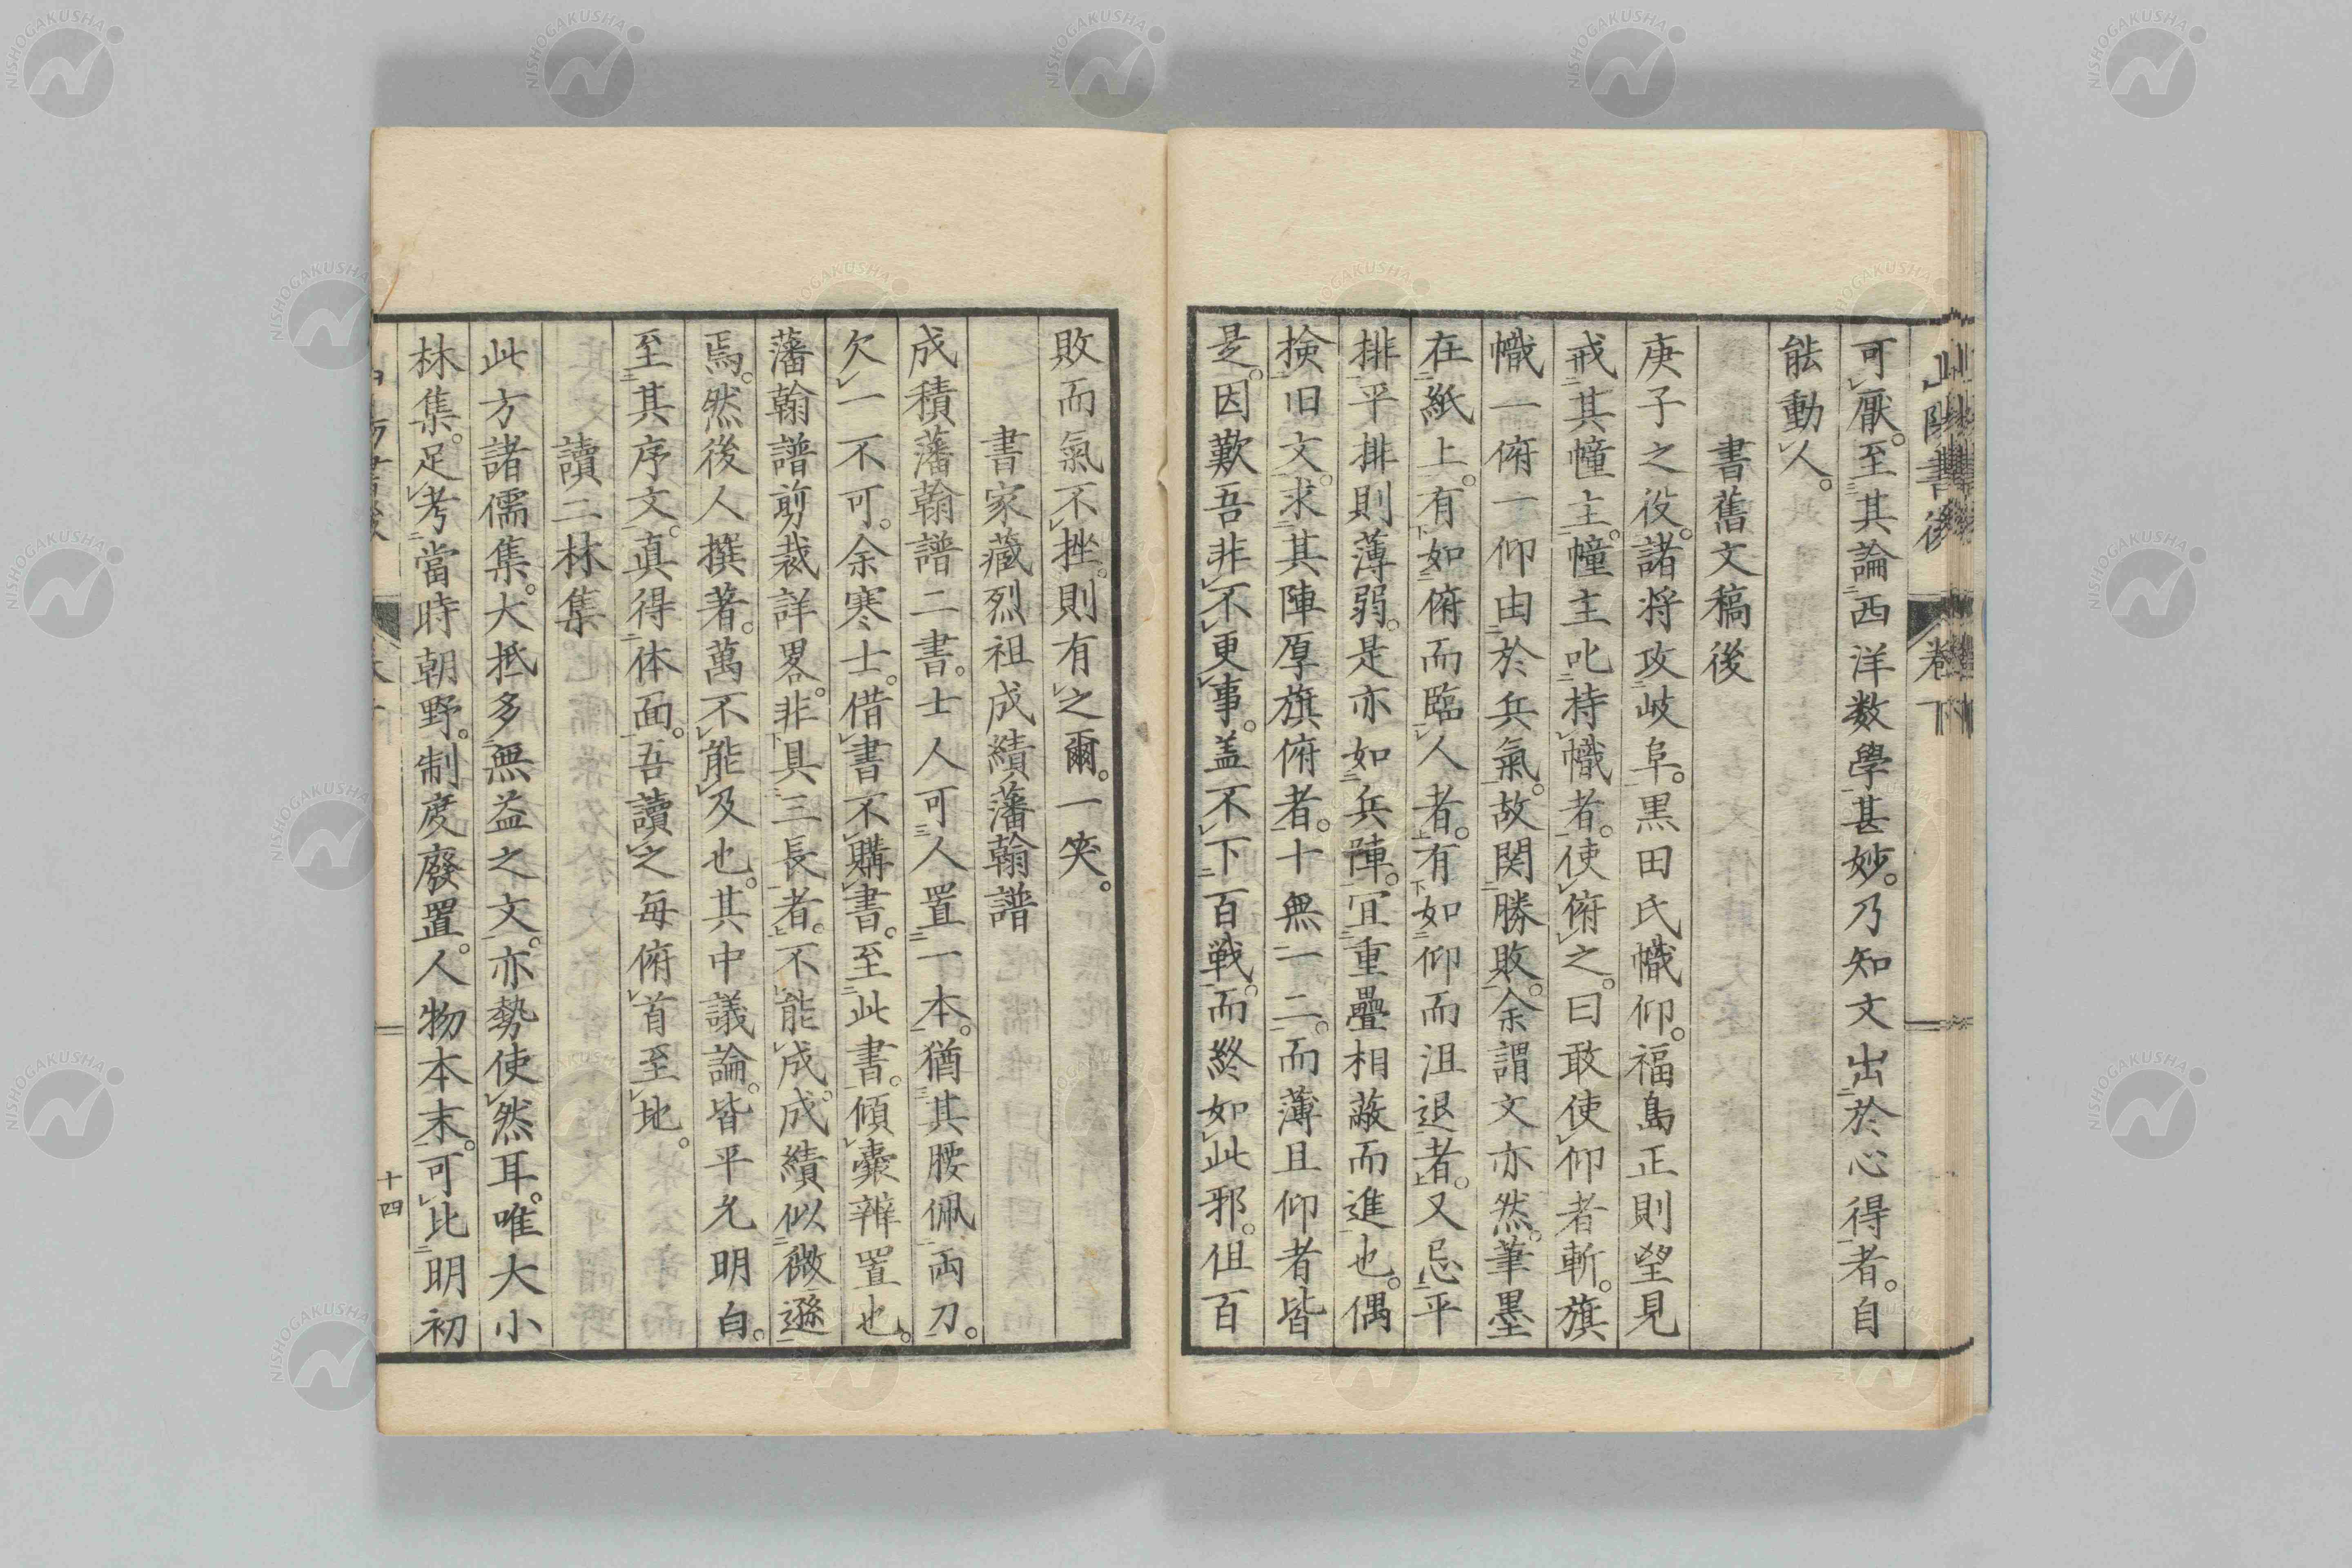 山陽書後 卷下
可厭。至其論西洋数學甚妙。乃知文出於心得者。自
能動人。
書舊文稿後
庚子之役。諸将攻岐阜。黒田氏幟仰。福島正則望見
戒其幢主。幢主叱持幟者。使俯之。曰敢使仰者斬。旗
幟一俯一仰由於兵氣。故関勝敗。余謂文亦然。筆墨
在紙上。有如俯而臨人者。有如仰而沮退者。又忌平
排平排則薄弱。是亦如兵陣。宜重疊相蔽而進也。偶
撿旧文。求其陣厚旗俯者。十無一二。而薄且仰者皆
是。因歎吾非不更事。盖不下百戦。而終如此邪。但百
敗而氣不挫。則有之爾。一笑。
書家藏烈祖成績藩翰譜
成積藩翰譜二書。士人可人置一本。猶其腰佩両刀。
欠一不可。余寒士。借書不購書。至此書。傾嚢辨置也。
藩翰譜剪裁詳畧。非具三長者。不能成。成績似微遜
焉。然後人撰著。萬不能及也。其中議論。皆平允明白。
至其序文。真得体面。吾讀之毎俯首至地。
讀二林集
此方諸儒集。大抵多無益之文。亦勢使然耳。唯大小
林集。足考當時朝野。制度廢置。人物本末。可比明初
十四
NISHOGAKUSHA